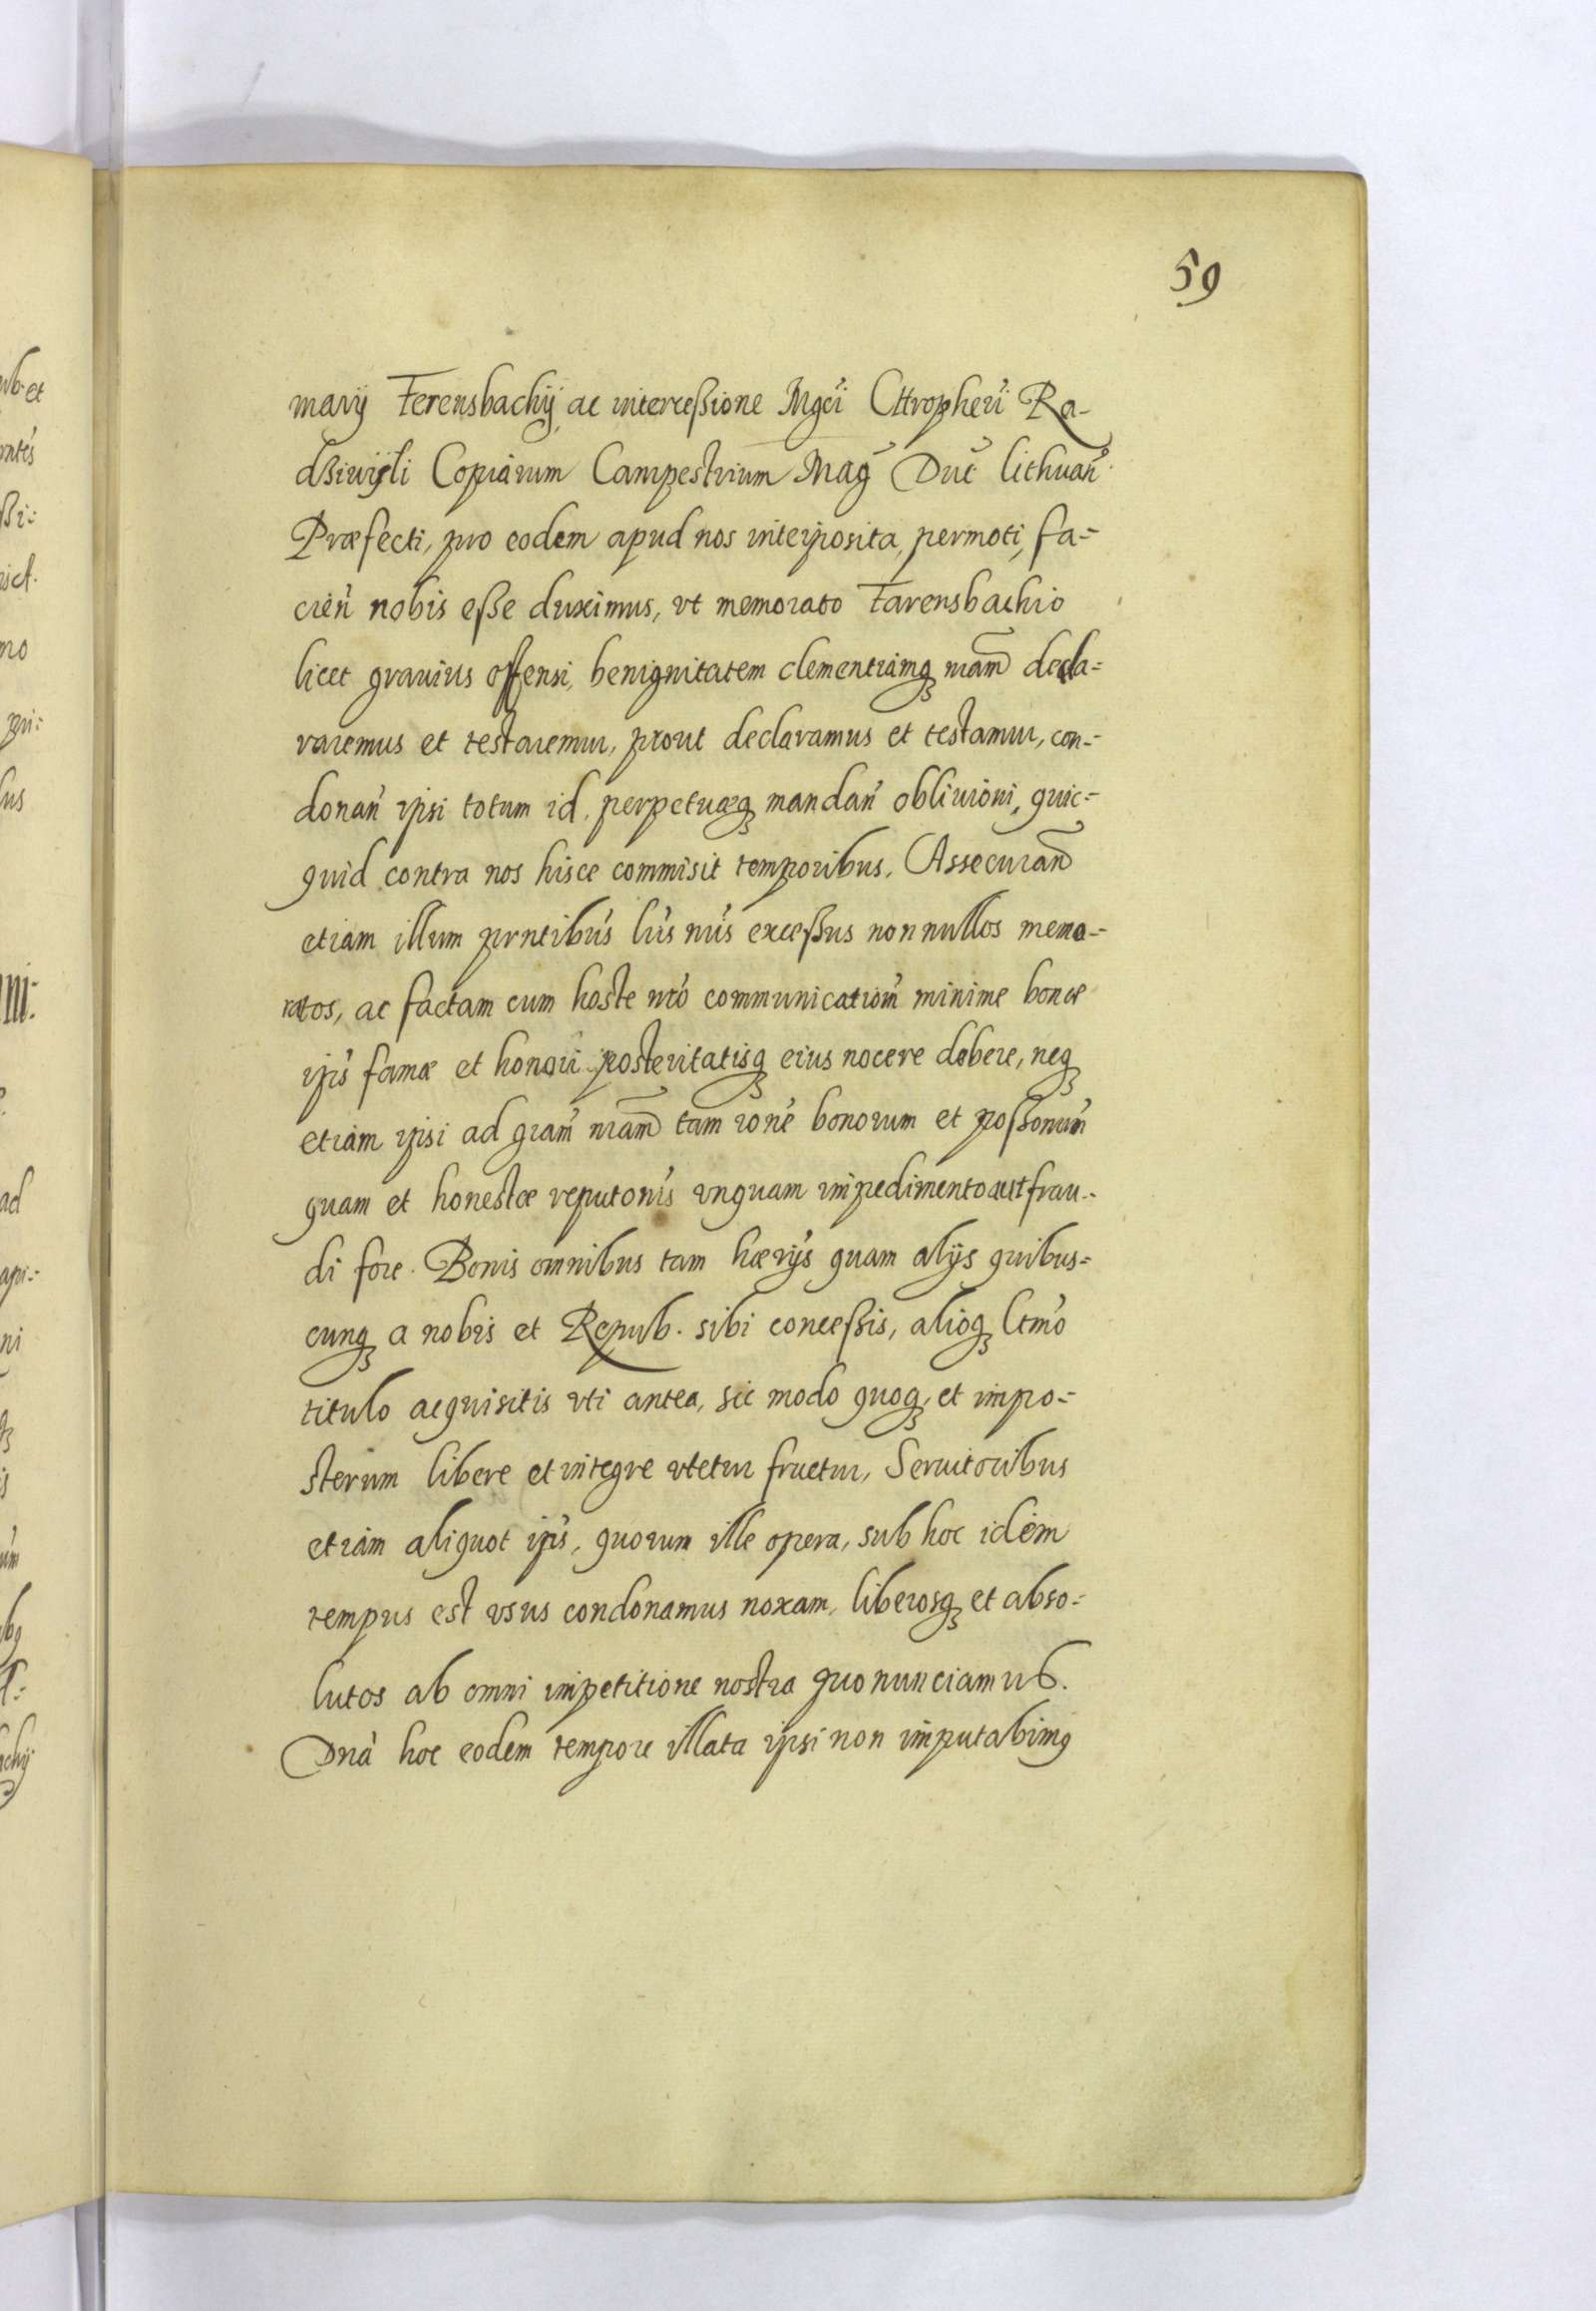 59
marij Ferensbachij, ac intercessione Mgci Chropheri Ra-
dziwili Copiarum Campestrium Mag Duc Lithuan
Præfecti, pro eodem apud nos interposita, permoti, fa=
cien nobis esse duximus, vt memorato Farensbachio
licet grauius offensi, benignitatem clementiamq nram decla=
raremus et testaremur, prout declaramus et testamur, con=
donan ipsi totum id, perpetuæq mandan obliuioni, quic=
quid contra nos hisce commisit temporibus. Assecuran
etiam illum prntibus lris nris excessus nonnullos memo=
ratos, ac factam cum hoste nro communicationem minime bonæ
ipis famæ et honori posteritatisq eius nocere debere, neq
etiam ipsi ad gram nram tam rone bonorum et possonum
quam et honestæ reputonis vnquam impedimento aut frau=
di fore. Bonis omnibus tam hærijs quam alijs quibus=
cunq a nobis et Repub. sibi concessis, alioq ltmo
titulo acquisitis vti antea, sic modo quoq, et impo=
sterum libere et integre vtetur fruetur, Seruitoribus
etiam aliquot ipis, quorum ille opera, sub hoc idem
tempus est vsus condonamus noxam, liberosq et abso=
lutos ab omni impetitione nostra pronunciamus.
Dna hoc eodem tempore illata ipsi non imputabimq